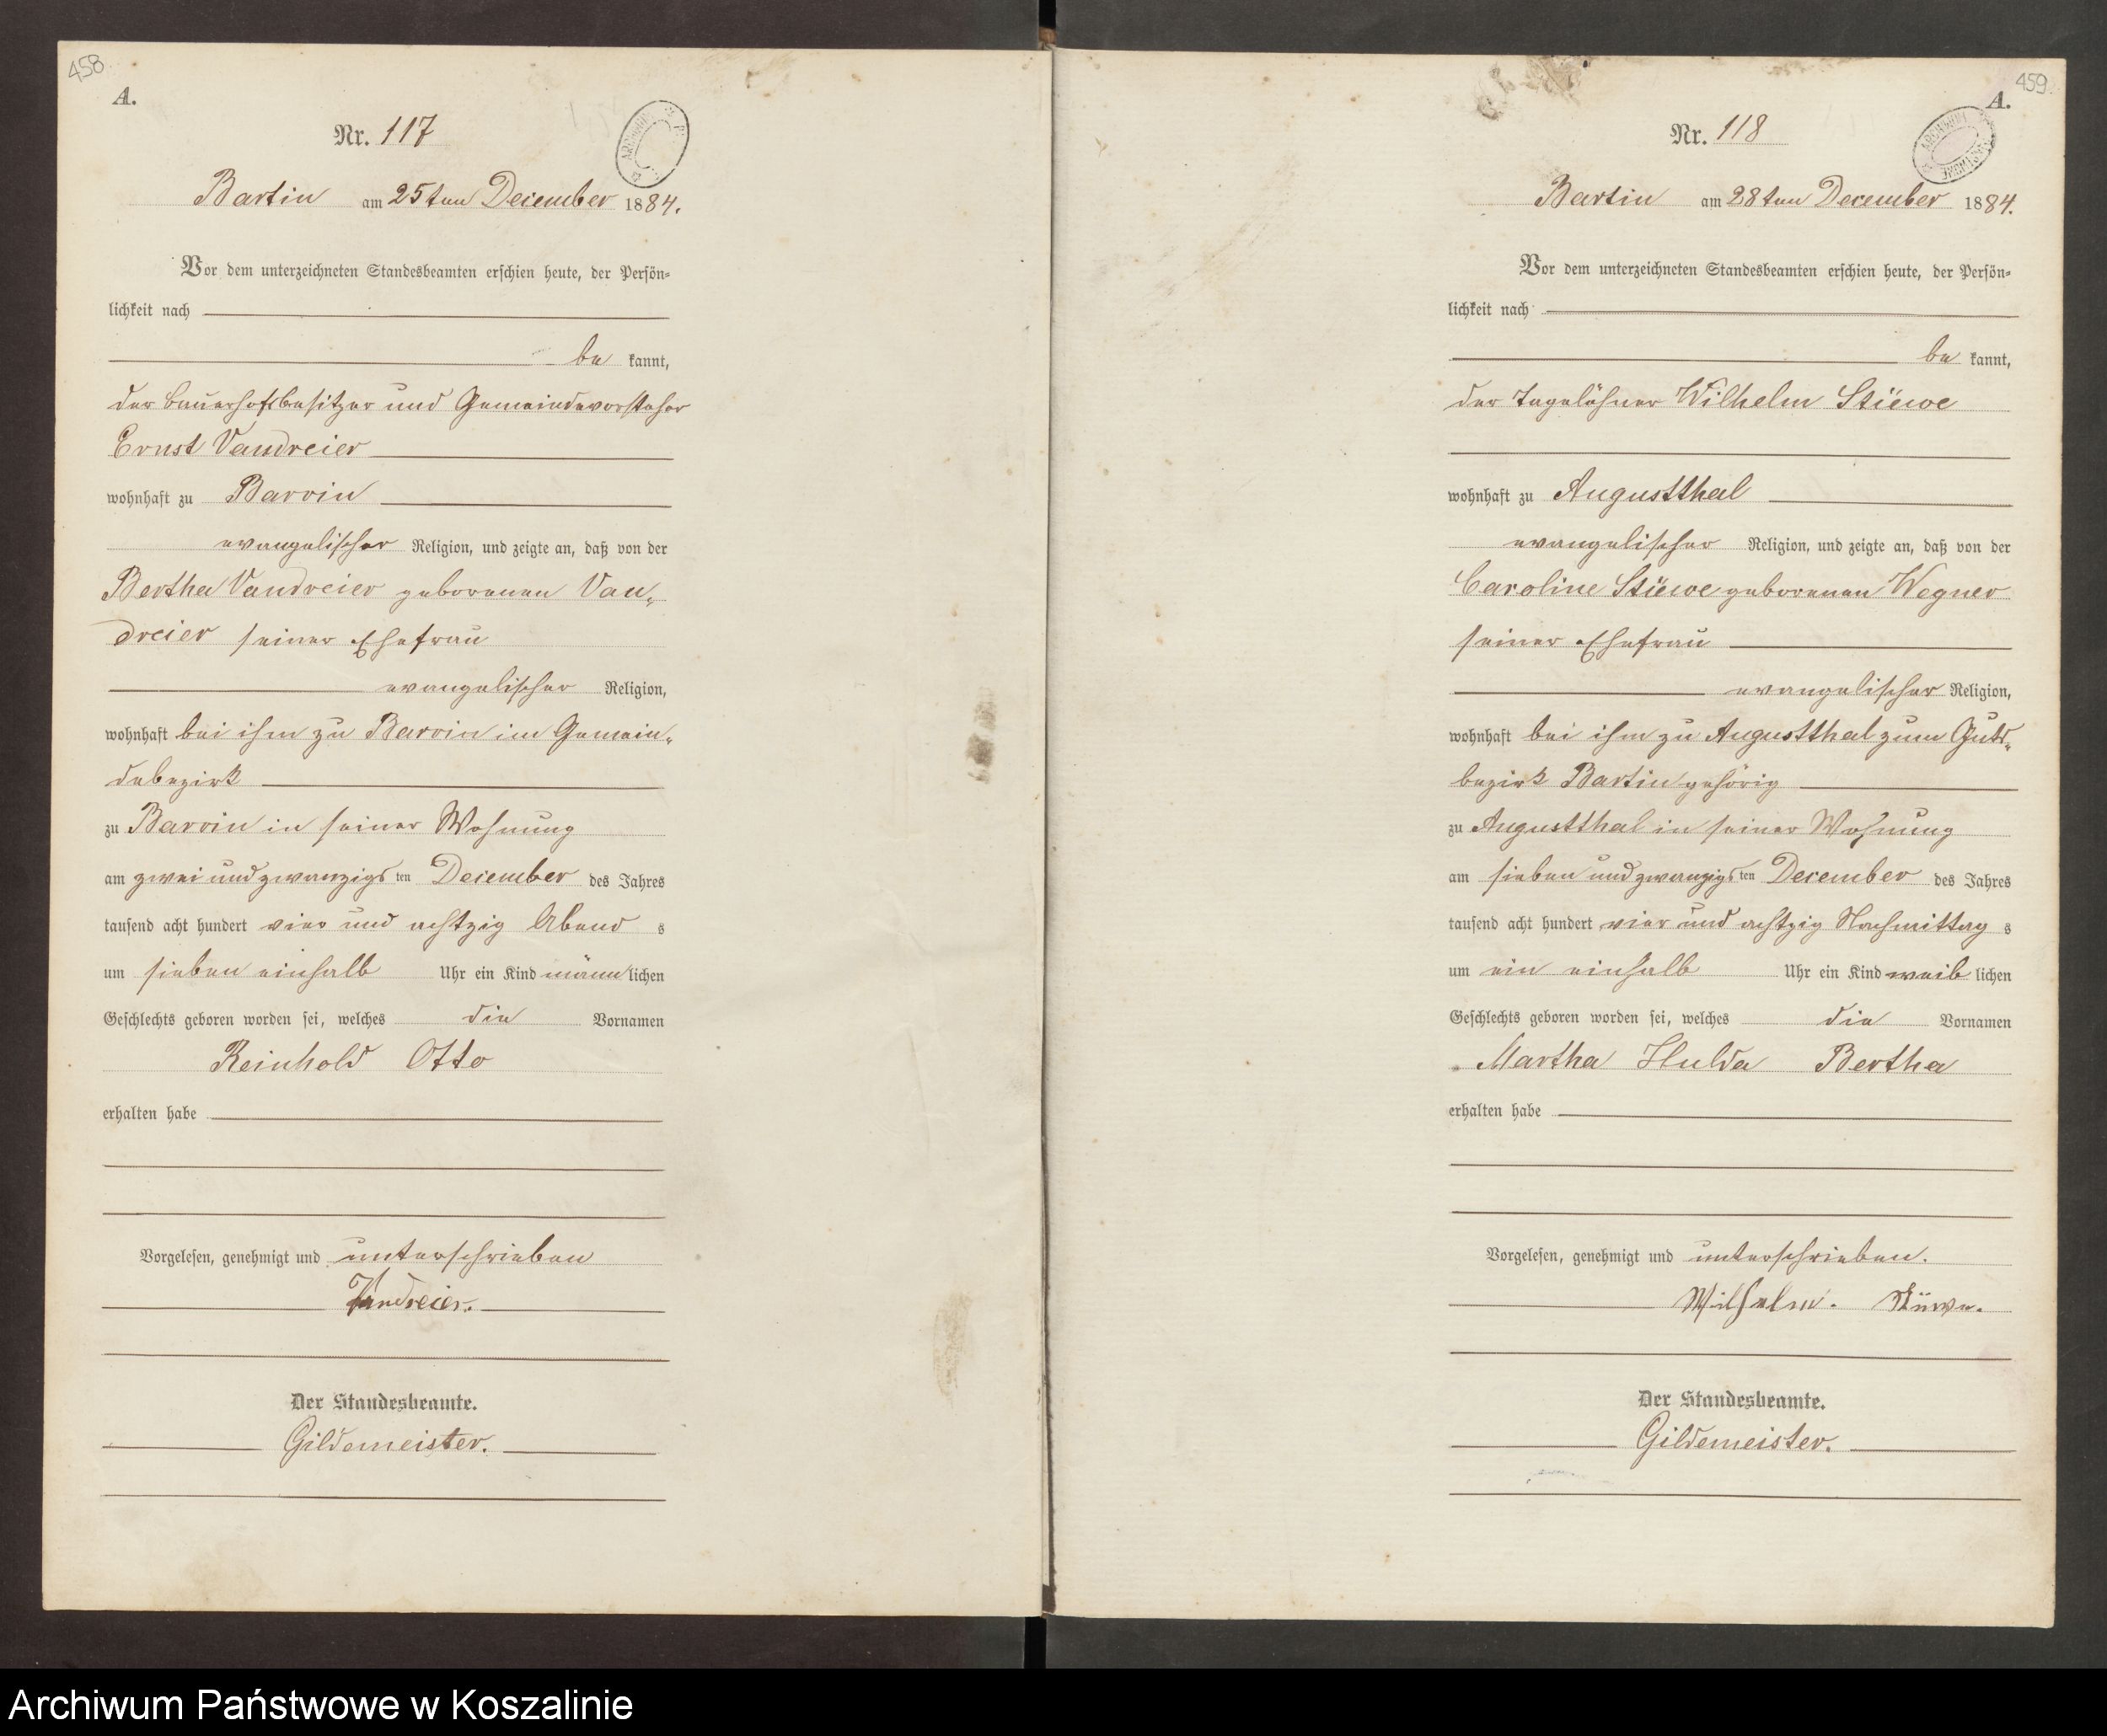 458
A.
Nr. 117
Bartin am 25ten December 1884.
Vor dem unterzeichneten Standesbeamten erschien heute, der Persön=
lichkeit nach
be kannt,
der Bauerhofsbesitzer und Gemeindevorsteher
Ernst Vandreier
wohnhaft zu Barvin
evangelischer Religion, und zeigte an, daß von der
Bertha Vandreier geborenen Van„
dreier seiner Ehefrau
evangelischer Religion,
wohnhaft bei ihm zu Barvin im Gemein„
debezirk
zu Barvin in seiner Wohnung
am zwei und zwanzigsten December des Jahres
tausend acht hundert vier und achtzig Abends
um sieben einhalb Uhr ein Kind männlichen
Geschlechts geboren worden sei, welches die Vornamen
Reinhold Otto
erhalten habe
Vorgelesen, genehmigt und unterschrieben
Vandreier.
Der Standesbeamte.
Gildemeister.
459
A.
Nr. 118
Bartin am 28ten December 1884.
Vor dem unterzeichneten Standesbeamten erschien heute, der Persön=
lichkeit nach
be kannt,
der Tagelöhner Wilhelm Stüewe
wohnhaft zu Augustthal
evangelischer Religion, und zeigte an, daß von der
Caroline Stüewe geborenen Wegner
seiner Ehefrau
evangelischer Religion,
wohnhaft bei ihm zu Augustthal zum Guts„
bezirk Bartin gehörig
zu Augustthal in seiner Wohnung
am sieben und zwanzigsten December des Jahres
tausend acht hundert vier und achtzig Nachmittags
um ein einhalb Uhr ein Kind weiblichen
Geschlechts geboren worden sei, welches die Vornamen
Martha Hulda Bertha
erhalten habe
Vorgelesen, genehmigt und unterschrieben.
Wilhelm. Stüwe.
Der Standesbeamte.
Gildemeister.
Archiwum Państwowe w Koszalinie